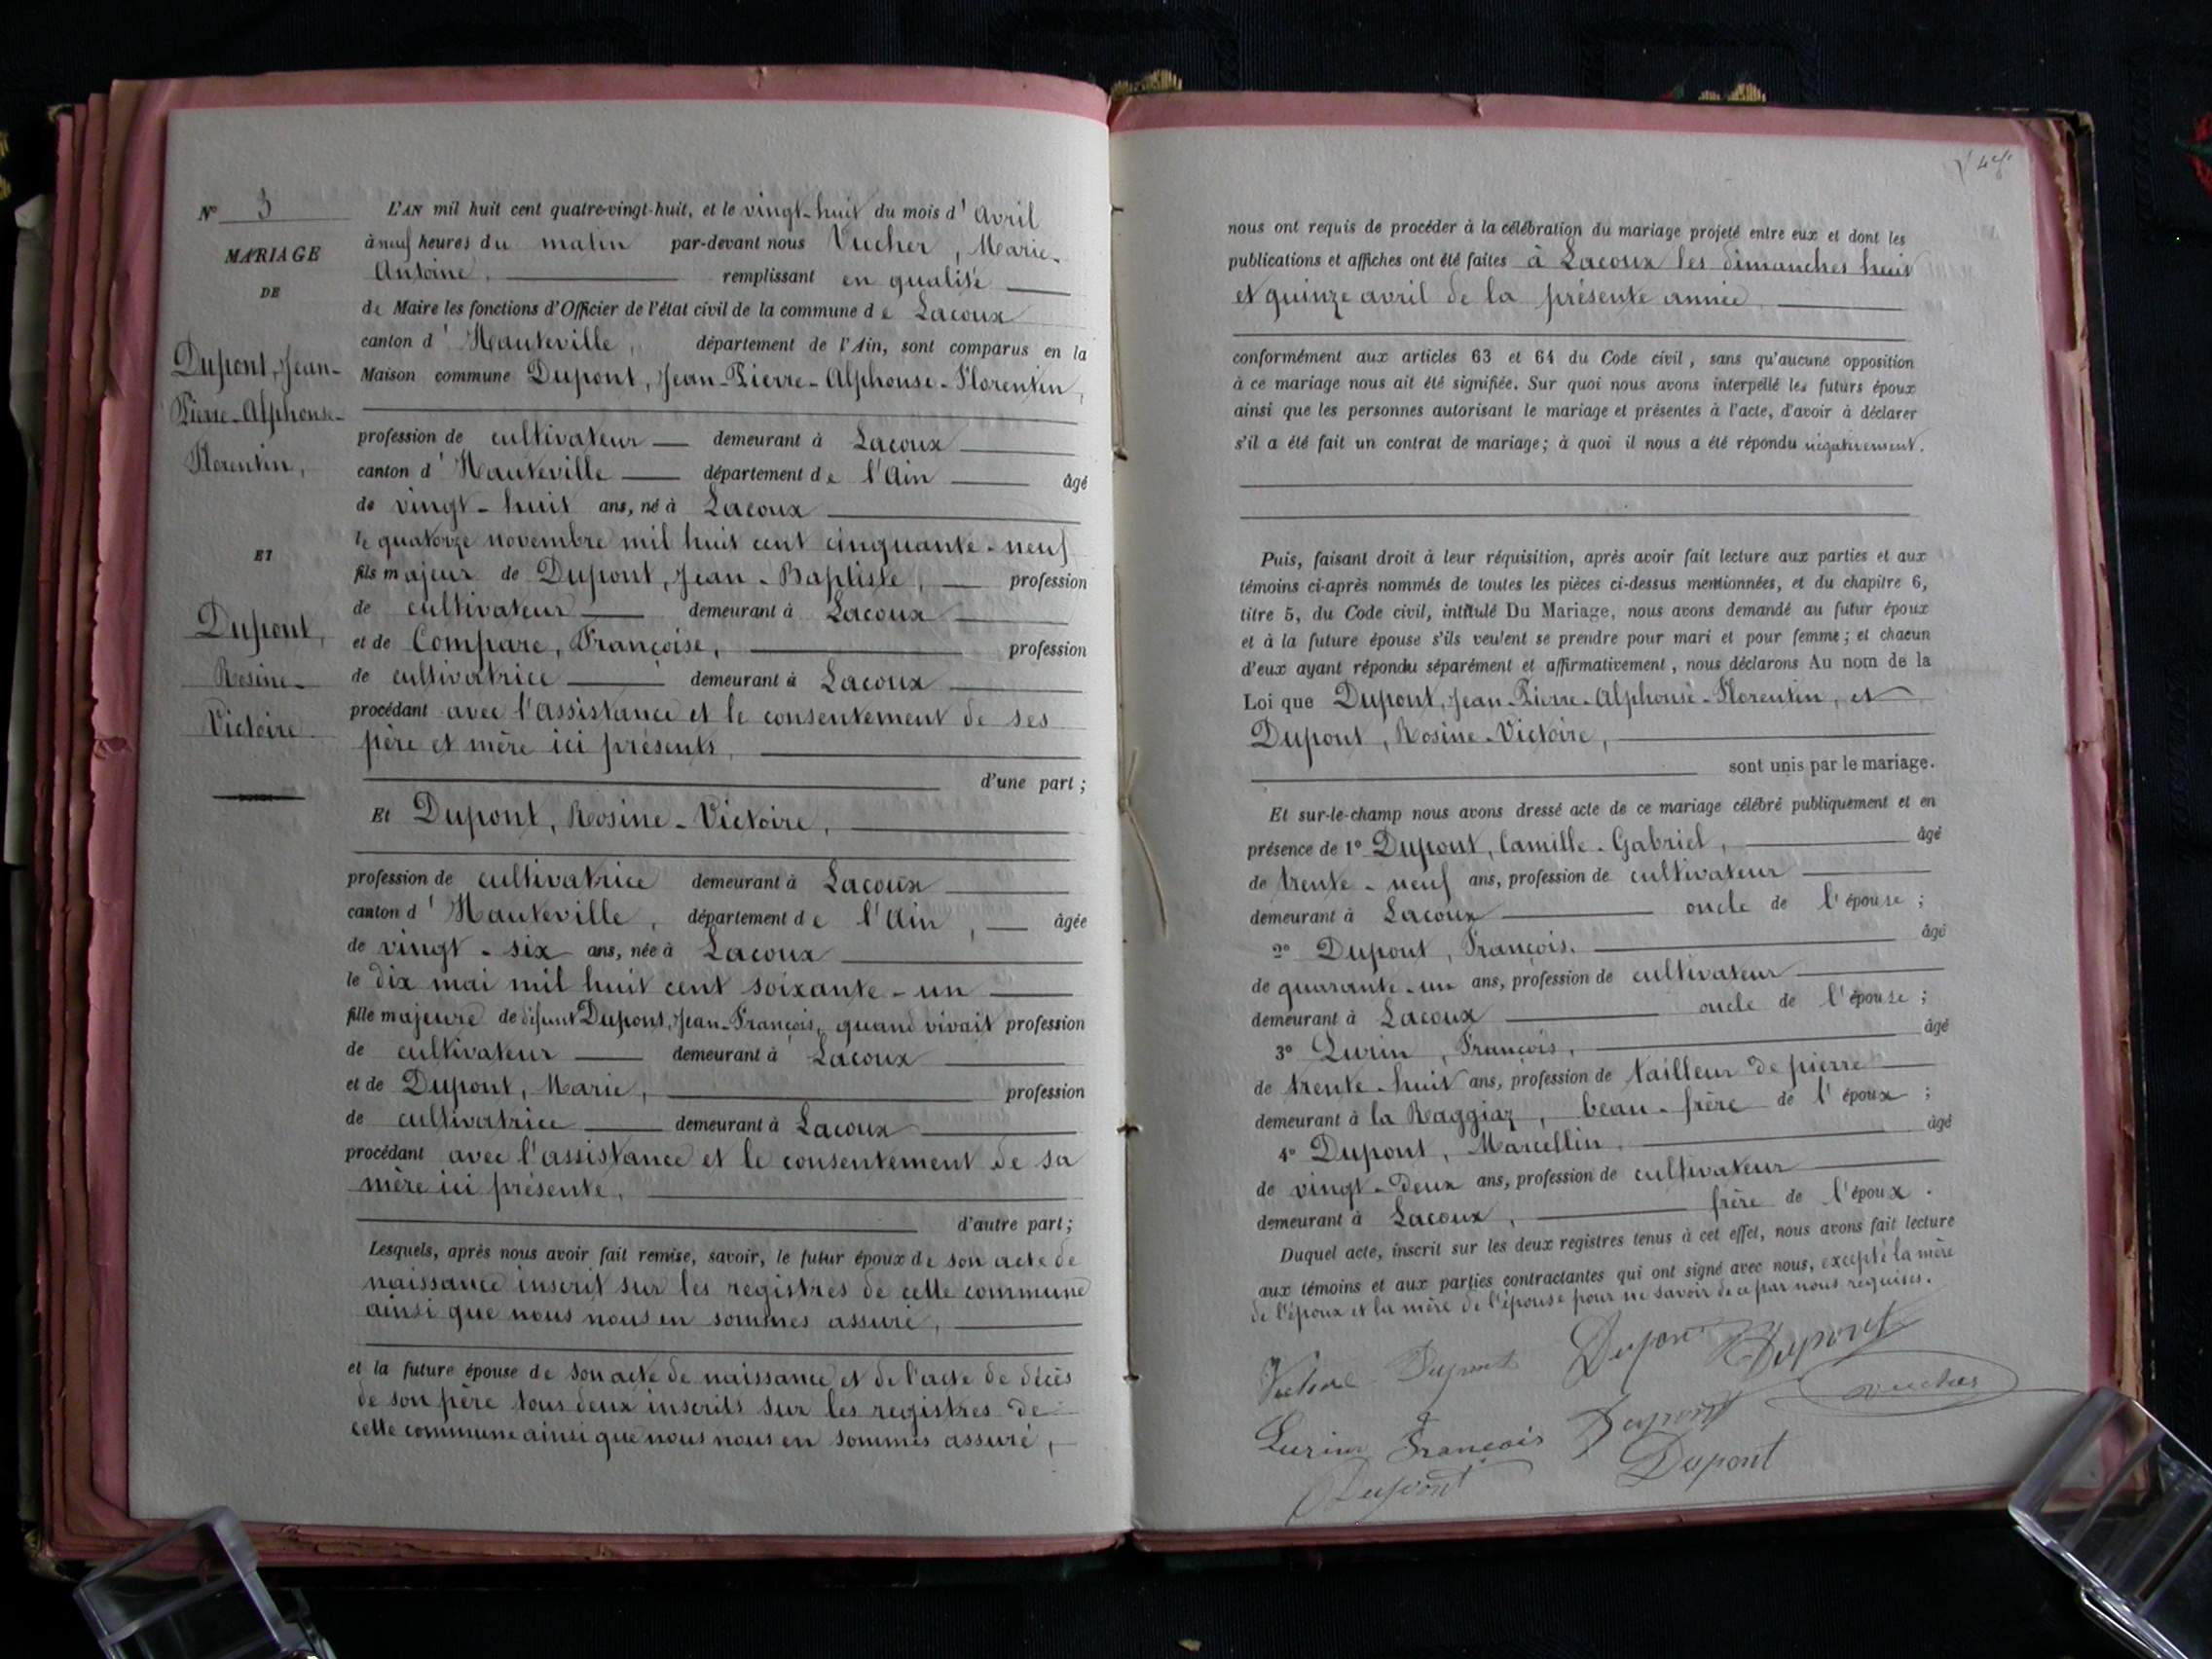 N° 3
MARIAGE
DE
Dupont, Jean-
Pierre-Alphonse-
Florentin,
ET
Dupont,
Rosine-
Victoire.
L'AN mil huit cent quatre-vingt-huit, et le vingt-huit du mois d'avril
à neuf heures du matin par-devant nous Vucher, Marie-
Antoine, remplissant en qualité
de Maire les fonctions d'Officier de l'état civil de la commune de Lacoux
canton d'Hauteville, département de l'Ain, sont comparus en la
Maison commune Dupont, Jean-Pierre-Alphonse-Florentin,
profession de cultivateur demeurant à Lacoux
canton d'Hauteville département de l'Ain âgé
de vingt-huit ans, né à Lacoux
le quatorze novembre mil huit cent cinquante-neuf
fils majeur de Dupont, Jean-Baptiste, profession
de cultivateur demeurant à Lacoux
et de Compare, Françoise, profession
de cultivatrice demeurant à Lacoux
procédant avec l'assistance et le consentement de ses
père et mère ici présents,
d'une part;
Et Dupont, Rosine-Victoire,
profession de cultivatrice demeurant à Lacoux
canton d'Hauteville, département de l'Ain, âgée
de vingt-six ans, née à Lacoux
le dix mai mil huit cent soixante-un
fille majeure de défunt Dupont, Jean-François, quand vivait profession
de cultivateur demeurant à Lacoux
et de Dupont, Marie, profession
de cultivatrice demeurant à Lacoux
procédant avec l'assistance et le consentement de sa
mère ici présente,
d'autre part;
Lesquels, après nous avoir fait remise, savoir, le futur époux de son acte de
naissance inscrit sur les registres de cette commune
ainsi que nous nous en sommes assuré,
et la future épouse de son acte de naissance et de l'acte de décès
de son père tous deux inscrits sur les registres de
cette commune ainsi que nous nous en sommes assuré,
nous ont requis de procéder à la célébration du mariage projeté entre eux et dont les
publications et affiches ont été faites à Lacoux les dimanches huit
et quinze avril de la présente année
conformément aux articles 63 et 64 du Code civil, sans qu'aucune opposition
à ce mariage nous ait été signifiée. Sur quoi nous avons interpellé les futurs époux
ainsi que les personnes autorisant le mariage et présentes à l'acte, d'avoir à déclarer
s'il a été fait un contrat de mariage; à quoi il nous a été répondu négativement.
Puis, faisant droit à leur réquisition, après avoir fait lecture aux parties et aux
témoins ci-après nommés de toutes les pièces ci-dessus mentionnées, et du chapitre 6,
titre 5, du Code civil, intitulé Du Mariage, nous avons demandé au futur époux
et à la future épouse s'ils veulent se prendre pour mari et pour femme; et chacun
d'eux ayant répondu séparément et affirmativement, nous déclarons Au nom de la
Loi que Dupont, Jean-Pierre-Alphonse-Florentin, et
Dupont, Rosine-Victoire,
sont unis par le mariage.
Et sur-le-champ nous avons dressé acte de ce mariage célébré publiquement et en
présence de 1° Dupont, Camille-Gabriel, âgé
de trente-neuf ans, profession de cultivateur
demeurant à Lacoux oncle de l'épouse;
2° Dupont, François, âgé
de quarante-un ans, profession de cultivateur
demeurant à Lacoux oncle de l'épouse;
3° Lurin, François, âgé
de trente-huit ans, profession de tailleur de pierre
demeurant à la Raggiaz, beau-frère de l'époux;
4° Dupont, Marcellin, âgé
de vingt-deux ans, profession de cultivateur
demeurant à Lacoux, frère de l'époux.
Duquel acte, inscrit sur les deux registres tenus à cet effet, nous avons fait lecture
aux témoins et aux parties contractantes qui ont signé avec nous, excepté la mère
de l'époux et la mère de l'épouse pour ne savoir de ce par nous requises.
Dupont Dupont Dupont
Vucher
Lurin François Dupont
Dupont Dupont